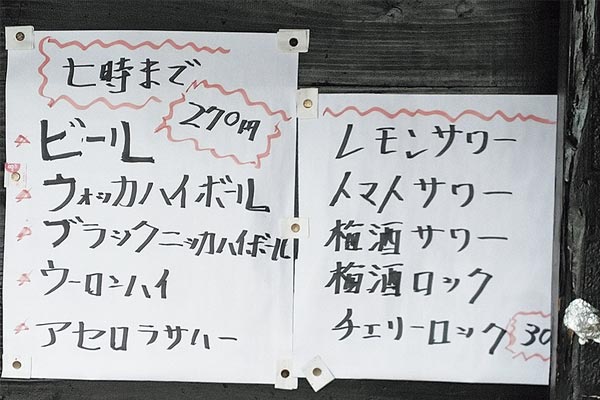 七時まで
270円
ビール
ウォッカハイボール
ブラックニッカハイボール
ウーロンハイ
アセロラサハー
レモンサワー
トマトサワー
梅酒サワー
梅酒ロック
チェリーロック
30